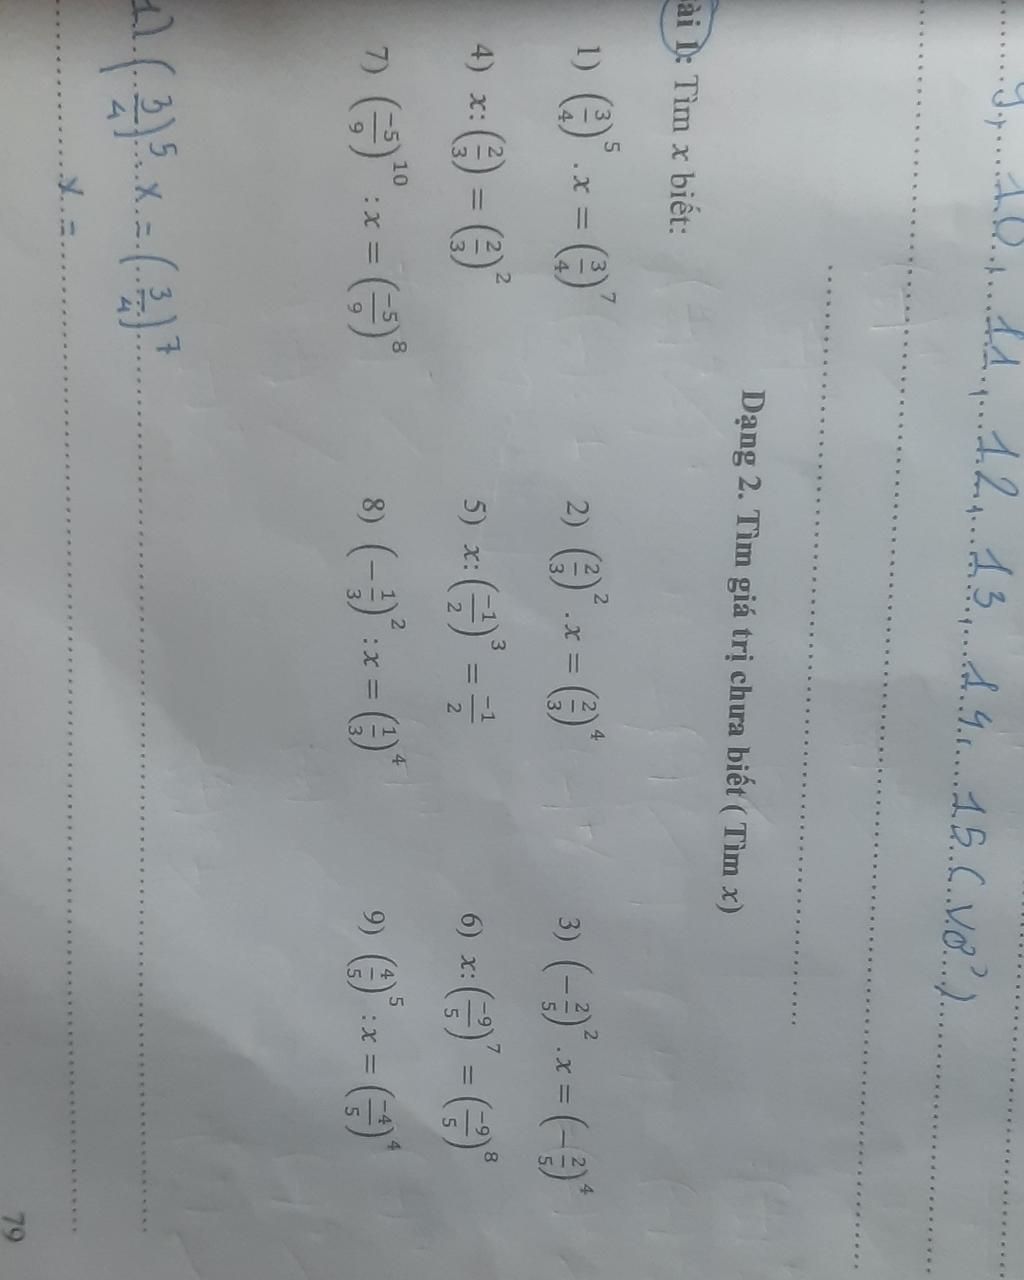 9, 10, 11, 12, 13, 14, 15 (vở)
Dạng 2. Tìm giá trị chưa biết ( Tìm x)
ài 1: Tìm x biết:
1) (3/4)^5 . x = (3/4)^7 2) (2/3)^2 . x = (2/3)^4 3) (-2/5)^2 . x = (-2/5)^4
4) x: (2/3) = (2/3)^2 5) x: (-1/2)^3 = -1/2 6) x: (-9/5)^7 = (-9/5)^8
7) (-5/9)^10 : x = (-5/9)^8 8) (-1/3)^2 : x = (1/3)^4 9) (4/5)^5 : x = (-4/5)^4
1) (3/4)^5 . x = (3/4)^7
x =
79